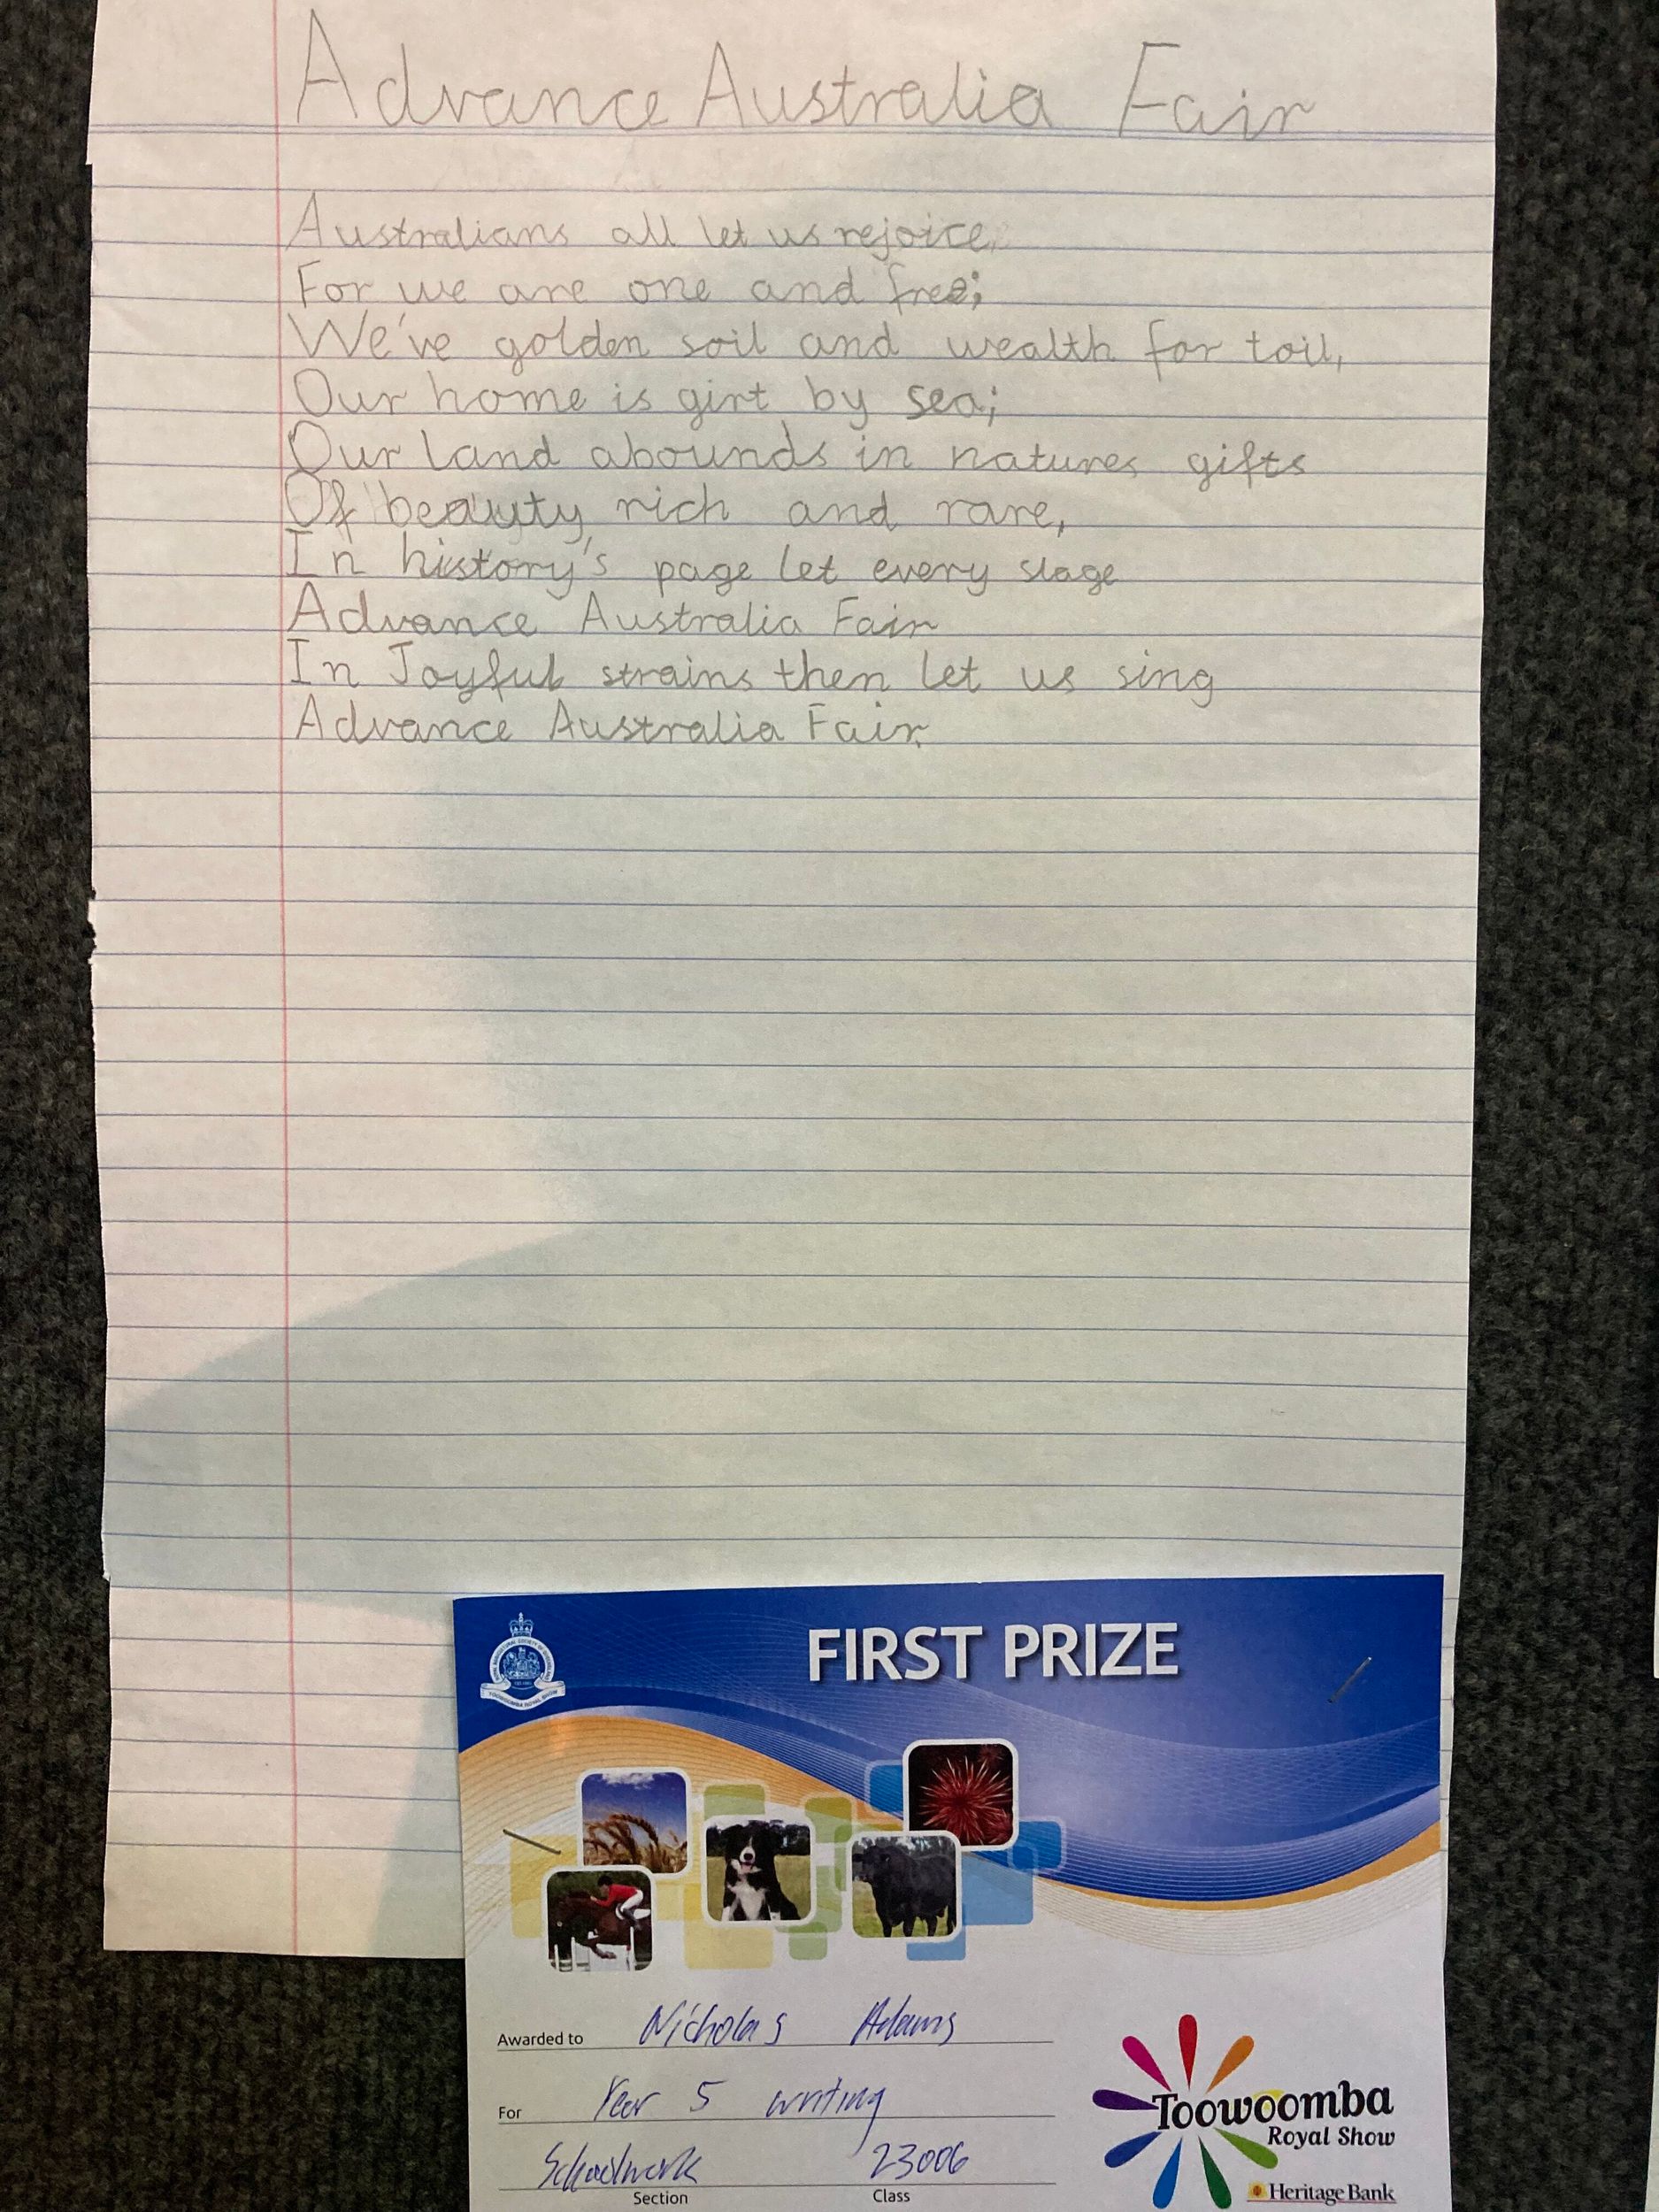 Advance Australia Fair
Australians all let us rejoice,
For we are one and free;
We've golden soil and wealth for toil,
Our home is girt by sea;
Our land abounds in natures gifts
Of beauty rich and rare,
In history's page let every stage
Advance Australia Fair
In Joyful strains then let us sing
Advance Australia Fair.
FIRST PRIZE
Awarded to Nicholas Adams
For Year 5 writing
Schoolwork 23006
Section Class
Toowoomba
Royal Show
Heritage Bank